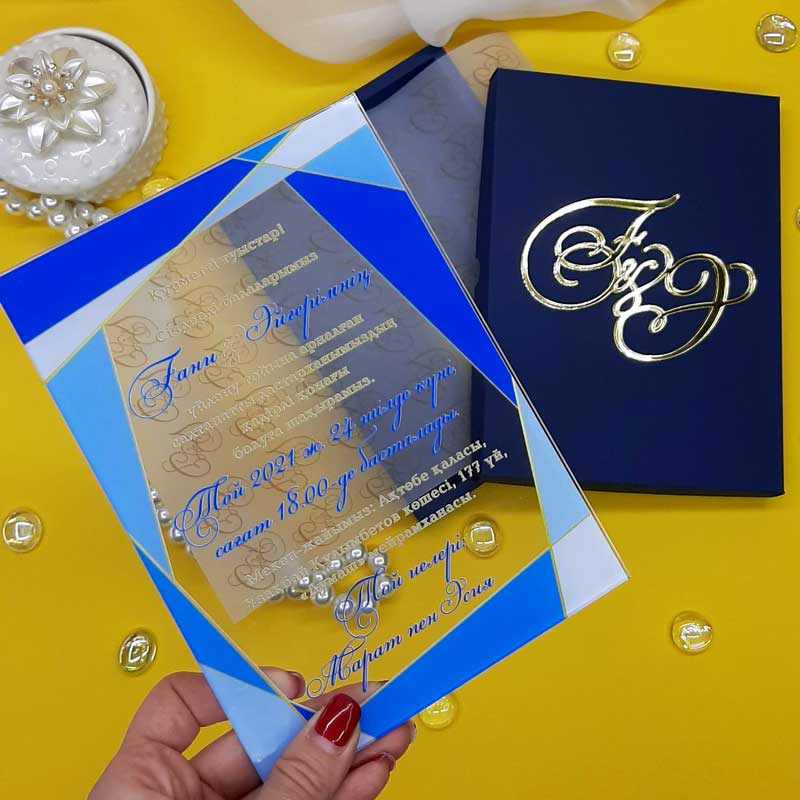 Құрметті туыстар!
Сіздерді балаларымыз
Ғани & Әйгерімнің
үйлену тойына арналған
салтанатты дастарханымыздың
қадірлі қонағы
болуға шақырамыз.
Той 2021 ж. 24 шілде күні,
сағат 18.00-де басталады.
Мекен-жайымыз: Ақтөбе қаласы,
Құлымбетов көшесі, 177 үй,
мейрамханасы.
Той иелері:
Марат пен Эсия